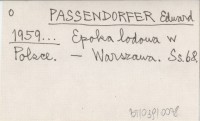 O PASSENDORFER Edward
1959... Epoka lodowa w
Polsce. — Warszawa. Ss. 68